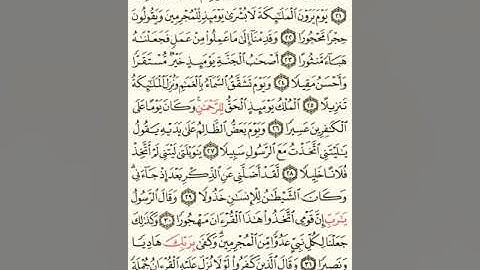 ۝٢١ يَوْمَ يَرَوْنَ الْمَلَٰٓئِكَةَ لَا بُشْرَىٰ يَوْمَئِذٍ لِّلْمُجْرِمِينَ وَيَقُولُونَ
حِجْرًا مَّحْجُورًا ۝٢٢ وَقَدِمْنَآ إِلَىٰ مَا عَمِلُوا۟ مِنْ عَمَلٍ فَجَعَلْنَٰهُ
هَبَآءً مَّنثُورًا ۝٢٣ أَصْحَٰبُ الْجَنَّةِ يَوْمَئِذٍ خَيْرٌ مُّسْتَقَرًّا
وَأَحْسَنُ مَقِيلًا ۝٢٤ وَيَوْمَ تَشَقَّقُ السَّمَآءُ بِالْغَمَٰمِ وَنُزِّلَ الْمَلَٰٓئِكَةُ
تَنزِيلًا ۝٢٥ الْمُلْكُ يَوْمَئِذٍ الْحَقُّ لِلرَّحْمَٰنِ ۚ وَكَانَ يَوْمًا عَلَى
الْكَٰفِرِينَ عَسِيرًا ۝٢٦ وَيَوْمَ يَعَضُّ الظَّالِمُ عَلَىٰ يَدَيْهِ يَقُولُ
يَٰلَيْتَنِى اتَّخَذْتُ مَعَ الرَّسُولِ سَبِيلًا ۝٢٧ يَٰوَيْلَتَىٰ لَيْتَنِى لَمْ أَتَّخِذْ
فُلَانًا خَلِيلًا ۝٢٨ لَّقَدْ أَضَلَّنِى عَنِ الذِّكْرِ بَعْدَ إِذْ جَآءَنِى ۗ
وَكَانَ الشَّيْطَٰنُ لِلْإِنسَٰنِ خَذُولًا ۝٢٩ وَقَالَ الرَّسُولُ
يَٰرَبِّ إِنَّ قَوْمِى اتَّخَذُوا۟ هَٰذَا الْقُرْءَانَ مَهْجُورًا ۝٣٠ وَكَذَٰلِكَ
جَعَلْنَا لِكُلِّ نَبِىٍّ عَدُوًّا مِّنَ الْمُجْرِمِينَ ۗ وَكَفَىٰ بِرَبِّكَ هَادِيًا
وَنَصِيرًا ۝٣١ وَقَالَ الَّذِينَ كَفَرُوا۟ لَوْلَا نُزِّلَ عَلَيْهِ الْقُرْءَانُ جُمْلَةً